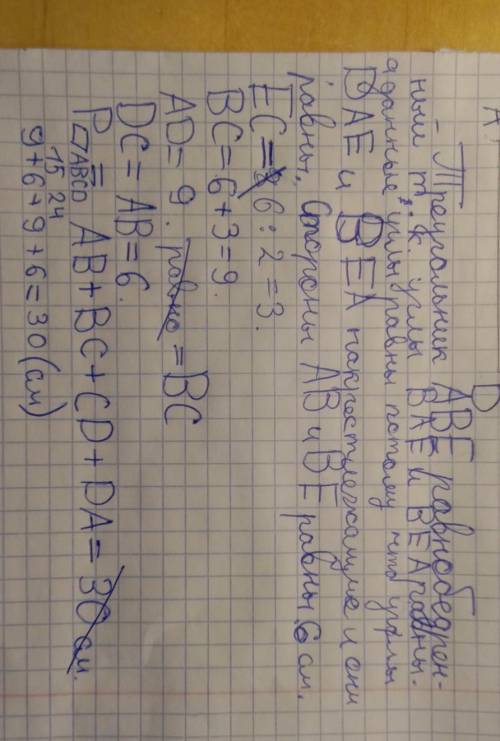 A
D
Треугольник ABE равнобедрен-
ный т.к. углы BAE и BEA равны.
а данные углы равны потому что углы
DAE и BEA накрест лежащие и они
равны. Стороны AB и BE равны 6 см.
EC = 6 : 2 = 3.
BC = 6 + 3 = 9.
AD = 9. равно = BC
DC = AB = 6.
P▱ABCD = AB + BC + CD + DA = 30 см.
15 24
9 + 6 + 9 + 6 = 30 (см)